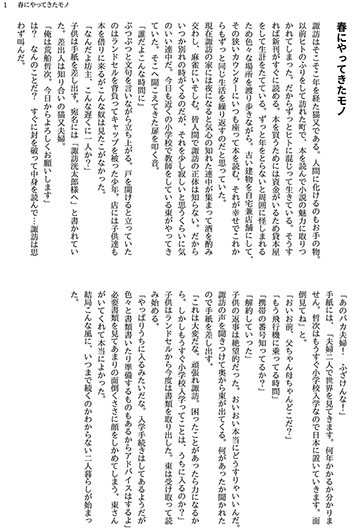 1　春にやってきたモノ
春にやってきたモノ
　諏訪はそこそこ年を経た猫又である。人間に化けるのもお手の物。
以前ヒトのふりをして訪れた町で、本を読んで小説の魅力に取りつ
かれてしまった。だからずっとヒトに混じって生きている。そうす
れば新刊がすぐに読める。本を買うためには資金がいるため貸本屋
をして生計をたてている。ずっと年をとらないと周囲に怪しまれる
ため色々な場所を渡り歩きながら、古い建物を自宅兼店舗にして、
その狭いカウンターにいつも座って本を読む。それが幸せでこれか
らもずっと同じ生活を繰り返すのだと思っていた。
　現在諏訪の家には夜になると気心の知れた連中が集まって酒を酌み
交わし麻雀にいそしむ。皆人間で諏訪の正体は知らない。だから
いつか別れの時がくるのだが、それを少し寂しいと思うくらいに気
のいい連中だ。今日も近くの小学校で教師をしている東がやってき
ていた。そこへ聞こえてきた扉を叩く音。
「誰だよこんな時間に」
　ぶつぶつと文句を言いながら立ち上がる。戸を開けると立っていた
のはランドセルを背負ってキャップを被った少年。店には子供達も
本を借りに来るがこんな奴は見たことがなかった。
「なんだよ坊主。こんな遅くに一人か?」
　子供は手紙を差し出す。宛名には「諏訪洸太郎様へ」と書かれてい
た。差出人は知り合いの猫又夫婦。
「俺は荒船哲次。今日からよろしくお願いします」
　は？　なんのことだ？　すぐに封を破って中身を読んで…諏訪は思
わず叫んだ。
「あのバカ夫婦！　ふざけんな！」
　手紙には、「夫婦二人で世界を見てきます。何年かかるか分かりま
せん。哲次はもうすぐ小学校入学なので日本に置いていきます。面
倒見てね」と。
「おいお前、父ちゃん母ちゃんどこだ？」
「もう飛行機に乗ってる時間」
「携帯の番号知ってるか？」
「解約していった」
　子供の返事は絶望的だった。おいおい本当にどうすりゃいいんだ。
諏訪の声を聞きつけて奥から東が出てくる。何があったか聞かれた
ので手紙を差し出した。
「これは大変だな。頑張れ諏訪。困ったことがあったら力になるか
ら。しかもうすぐ小学校入学ってことは、うちに入るのか？」
　子供はランドセルから今度は書類を取り出した。東は受け取って読
み始める。
「やっぱりうちに入るみたいだな。入学手続きはしてあるようだが
色々と書類書いたり準備するものもあるからアドバイスはするよ」
　必要書類を見てあまりの面倒くささに顔をしかめてしまう。東さん
がいてくれて本当によかった。
　結局こんな風に、いつまで続くのかわからない二人暮らしが始まっ
た。